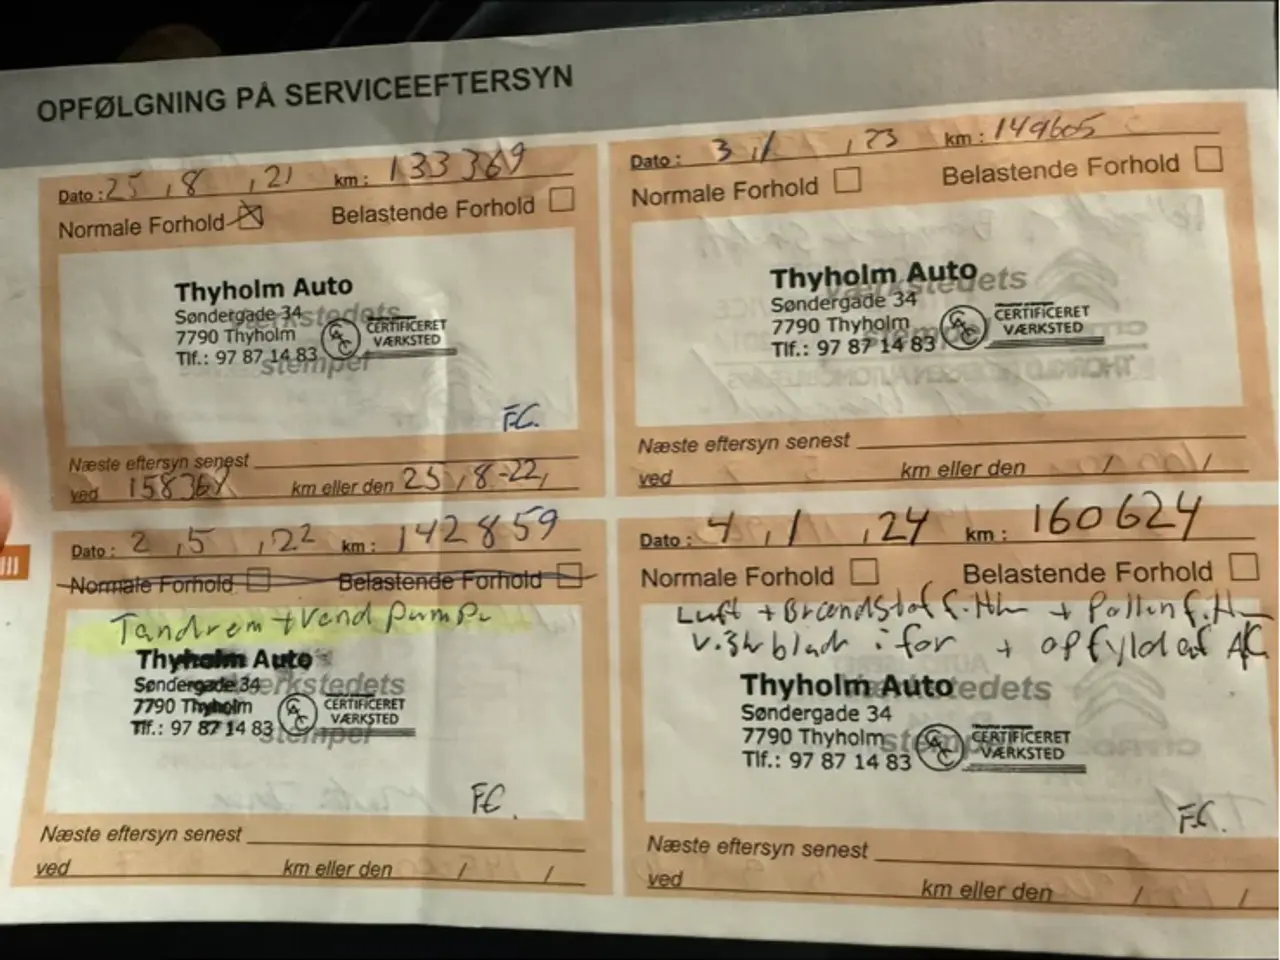 OPFØLGNING PÅ SERVICEEFTERSYN
Dato : 25 , 8 , 21 km : 133369
Normale Forhold Belastende Forhold
Thyholm Auto
Søndergade 34
7790 Thyholm
Tlf.: 97 87 14 83
CERTIFICERET
VÆRKSTED
værkstedets
stempel
F.C.
Næste eftersyn senest
ved 158369 km eller den 25 , 8-22,
Dato : 3 / , 23 km : 149605
Normale Forhold Belastende Forhold
Thyholm Auto
Søndergade 34
7790 Thyholm
Tlf.: 97 87 14 83
CERTIFICERET
VÆRKSTED
Værkstedets
stempel
Næste eftersyn senest
ved km eller den / /
Dato : 2 , 5 , 22 km : 142859
Normale Forhold Belastende Forhold
Tandrem + Vand pumpe
Thyholm Auto
Søndergade 34
7790 Thyholm
Tlf.: 97 87 14 83
CERTIFICERET
VÆRKSTED
Værkstedets
stempel
F.C.
Næste eftersyn senest
ved km eller den / /
Dato : 4 , 1 , 24 km : 160624
Normale Forhold Belastende Forhold
Luft + Brændstof filter + Pollenfilter
Viskerblade i for + opfyld af AC
Thyholm Auto
Søndergade 34
7790 Thyholm
Tlf.: 97 87 14 83
CERTIFICERET
VÆRKSTED
Værkstedets
stempel
F.C.
Næste eftersyn senest
ved km eller den / /